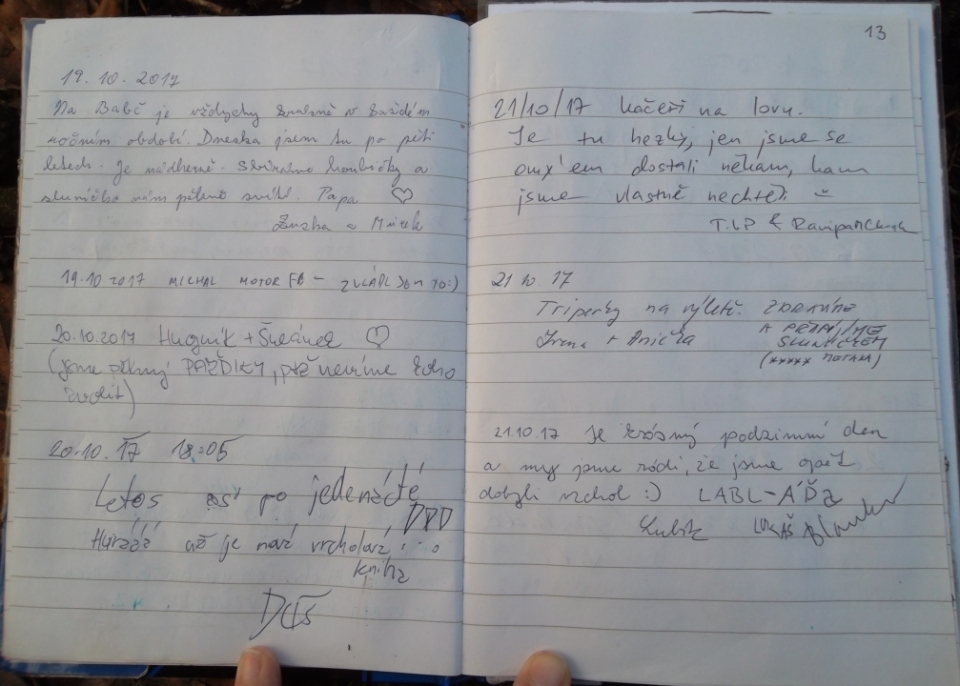 19.10.2017
Na Babě je vždycky krásně v každém
ročním období. Dneska jsem tu po pěti
letech. Je nádherně. Sbíráme houbičky a
sluníčko nám pěkně svítí. Papa ♡
Zuzka a Mirek
19.10.2017 MICHAL MOTOR FB – ZVLÁDL JSEM TO :)
20.10.2017 Hugník + ♡
(jsme plný PAŽDIKY, ptž nevíme koho
zvolit)
20.10.17 18:05
Letos asi po jedenácté
DDD
Hurááá už je nová vrcholová
kniha
13
21/10/17 Kačeři na lovu.
Je tu hezky, jen jsme se
omylem dostali někam, kam
jsme vlastně nechtěli
T.I.P &
21.10.17
Triperky na výletě. ZDRAVÍME
Irena + Anička A PŘEJEME
SLUNÍČKEM
(xxxxx)
21.10.17 Je krásný podzimní den
a my jsme rádi, že jsme opět
dobyli vrchol :) LABL-ÁĎA
Lubik LUKÁŠ